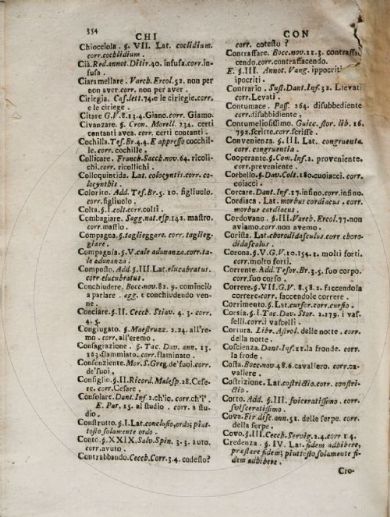 354
CHI
CON
Chiocciola. §. VII. Lat. coclidium.
corr. cochlidium.
Cià. Red. annot. Ditir. 40. infusa. corr. in-
fusa.
Ciarsmellare. Varch. Ercol. 52. non per
non aver. corr. non per aver.
Ciriegia. Cas. lett. 74. o le ciriegie. corr.
e le ciriege.
Citare G. V. 8. 13. 4. Giano. corr. Giamo.
Civanzare. §. Cron. Morell. 234. certi
contanti avea. corr. certi contanti.
Cochilla. Tes. Br. 4. 4. E appresso cocchil-
le. corr. cochille.
Collicare. Franch. Sacch. nov. 64. ricoli-
chi. corr. ricollichi.
Colloquintida. Lat. colocyntis. corr. co-
locynthis.
Colorito. Add. Tes. Br. 5. 10. figliuolo.
corr. figliuolo.
Colta. §. I. colt. corr. colti.
Combagiare. Sagg. nat. esp. 142. mastro.
corr. mastio.
Compagna. §. taglieggare. corr. taglieg-
giare.
Compagnia. §. V. cale adunanza. corr. ta-
le adunanza.
Composto. Add §. III. Lat. elucubratut.
corr. elucubratus.
Conchiudere. Bocc. nov. 82. 5. cominciò
a parlare. agg. e conchiudendo ven-
ne.
Conciare. §. II. Cecch. Stiav. 4. 3. corr.
4. 5.
Congiugato. §. Maestruzz. 2. 24. all're-
mo. corr. all'eremo.
Consagrazione. §. Tac. Dav. ann. 13.
163. flammiato. corr. flaminato.
Consenziente. Mor. S. Greg. de'fuoi. corr.
de'suoi.
Consiglio. §. II. Ricord. Malesp. 28. Cese-
re. corr. Cesare.
Consolare. Dant. Inf. 2. ch'io. corr. ch'i'.
E. Par. 15. al studio. corr. a stu-
dio.
Construtto. §. I. Lat. conclusio, ordo; piut-
tosto solamente ordo.
Conto. §. XXIX. Salv. Spin. 3. 3. auto.
corr. avuto.
Contrabbando. Cecch. Corr. 3. 4. codesto?
corr. cotesto?
Contraffare. Bocc. nov. 22. 3. contraffa-
cendo. corr. contraffacendo.
E. §. III. Annot. Vang. ippocriti
ipocriti.
Contrario. Sust. Dant. Inf. 32. Lievati
corr. Levati.
Contumace. Pass. 264. disubbediente
corr. disubbidiente.
Contumeliosissimo. Guicc. stor. lib. 16.
792. scrilte. corr. scrisse.
Convenienza. §. III. Lat. congruenta.
corr. congruentia.
Cooperante. §. Com. Inf. 2. proveniente.
corr. preveniente
Corbello. §. Dav. Colt. 180. cuoiacci. corr.
coiacci.
Corcare. Dant. Inf. 17. insino. corr. infino.
Cordiaca. Lat. morbus cardiacus. corr.
morbus cardiacus.
Cordovano. §. III. Varch. Ercol. 77. non
aviamo. corr. non avemo.
Corista. Lat. choroididasculus. corr. choro-
didascalus.
Corona. §. V. G. V. 10. 154. 2. molti forti.
corr. molto forti.
Corrente. Add. Tesor. Br. 3. 5. suo corpo.
corr. suo corso.
Correre. §. VII. G. V. 8. 58. 2. faccendola
correre. corr. faccendole correre.
Corrimento. §. Lat. cursor. corr. cursio.
Corsia. §. I. Tac. Dav. Stor. 2. 279. i vas-
selli. corr. i vascelli.
Cortura. Libr. Astrol. delle notte. corr.
della notte.
Coscienza. Dant. Inf. 22. la fronde. corr.
la frode.
Costa. Bocc. nov. 48. 6. cavallero. corr. ca-
valiere.
Costrizione. Lat. costrictio. corr. constri-
ctio.
Cotto. Add. §. III. soicratissimo. corr.
susserratissimo.
Covo. Sir. disc. ann. 51. delle serpe. corr.
della serpe.
Covo. §. III. Cecch. Servig. 2. 4. corr 1. 4.
Credenza. §. IV. Lat. fidem adhibere,
praestare fidem; piuttosto solamente fi-
dem adhibere.
Cro-